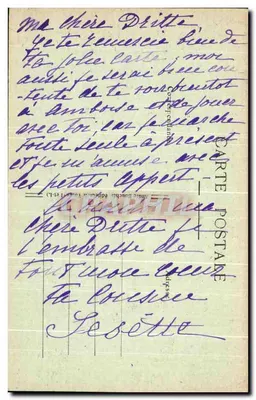 ma chère Dritte
je te remercie bien de
ta jolie carte, moi
aussi je serai bien con
tente de te voir bientôt
à Amboise et de jouer
avec toi, car je marche
toute seule à présent
et je m'amuse avec
les petits
ma
chère Dritte je
t'embrasse de
tout mon coeur
ta cousine
CARTE POSTALE